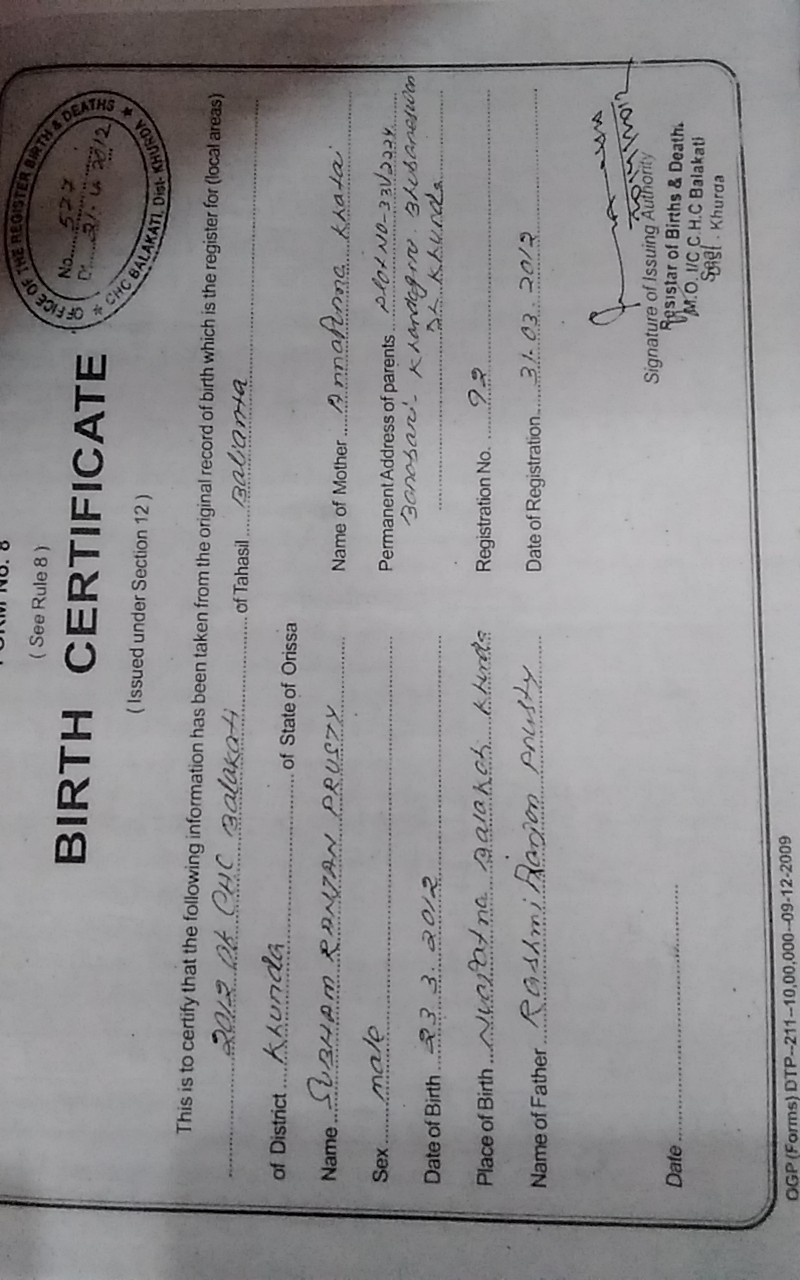 FORM No. 8
( See Rule 8 )
BIRTH CERTIFICATE
( Issued under Section 12 )
OFFICE OF THE REGISTER BIRTH & DEATHS
No. 527
Dt. 31.
2012
★ CHC BALAKATI, Dist- KHURDA ★
This is to certify that the following information has been taken from the original record of birth which is the register for (local areas)
2012 of CHC Balakati of Tahasil Balianta
of District Khurda of State of Orissa
Name SUBHAM RANJAN PRUSTY
Name of Mother Annapurna Khatai
Sex male
Permanent Address of parents Plot NO-331/2224
Banasari Khandagiri Bhubaneswar
Dt. Khurda
Date of Birth 23 3. 2012
Place of Birth Nuapatna Balakati Khurda
Registration No. 92
Name of Father Rashmi Ranjan Prusty
Date of Registration 31.03.2012
Signature of Issuing Authority
Resistar of Births & Death.
M.O. I/C C.H.C Balakati
Dist - Khurda
Date
OGP (Forms) DTP--211--10,00,000--09-12-2009